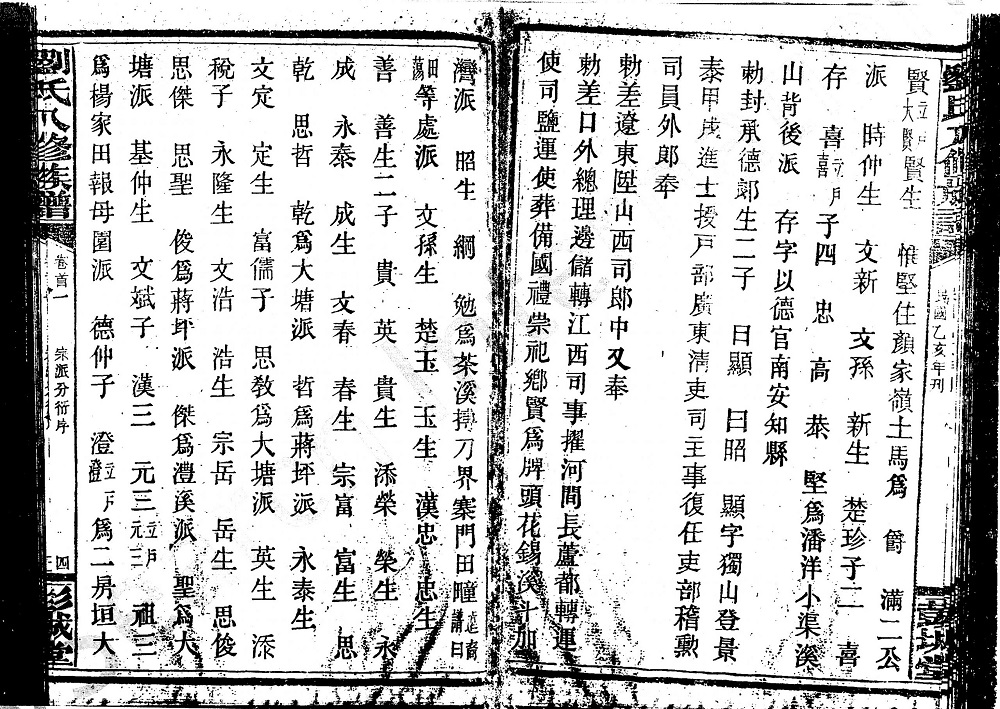 民國乙亥年刊
賢立戶大賢賢生 惟堅住顏家嶺土馬爲 爵 滿二公
派 時仲生 文新 文孫 新生 楚珍子二 喜
存 喜立戶喜子四 忠 高 恭 堅爲潘洋小集溪
山背後派 存字以德官南安知縣
勅封承德郎生二子 曰顯 曰昭 顯字獨山登景
泰甲戌進士授戶部廣東清吏司主事復任吏部稽勲
司員外郎奉
勅差遼東陞山西司郎中又奉
勅差口外總理邊儲轉江西司事擢河間長蘆都轉運
使司鹽運使葬備國禮崇祀鄉賢爲牌頭花錫溪斗加
灣派 昭生 綱 勉爲茶溪摶刀界寨門田瞳
田等處派 文孫生 楚玉 玉生 漢忠 忠生
善 善生二子 貴 英 貴生 添榮 榮生 永
成 永泰 成生 文春 春生 宗富 富生 思
乾 思哲 乾爲大塘派 哲爲蔣坪派 永泰生
文定 定生 富儒子 思敎爲大塘派 英生 添
稅子 永隆生 文浩 浩生 宗岳 岳生 思俊
思傑 思聖 俊爲蔣坪派 傑爲澧溪派 聖爲大
塘派 基仲生 文斌子 漢三 元三立戶元三 祖三
爲楊家田報母圍派 德仲子 澄立戶澄爲二房垣大
劉氏八修族譜
卷首一
宗派分衍序
四
彭城堂